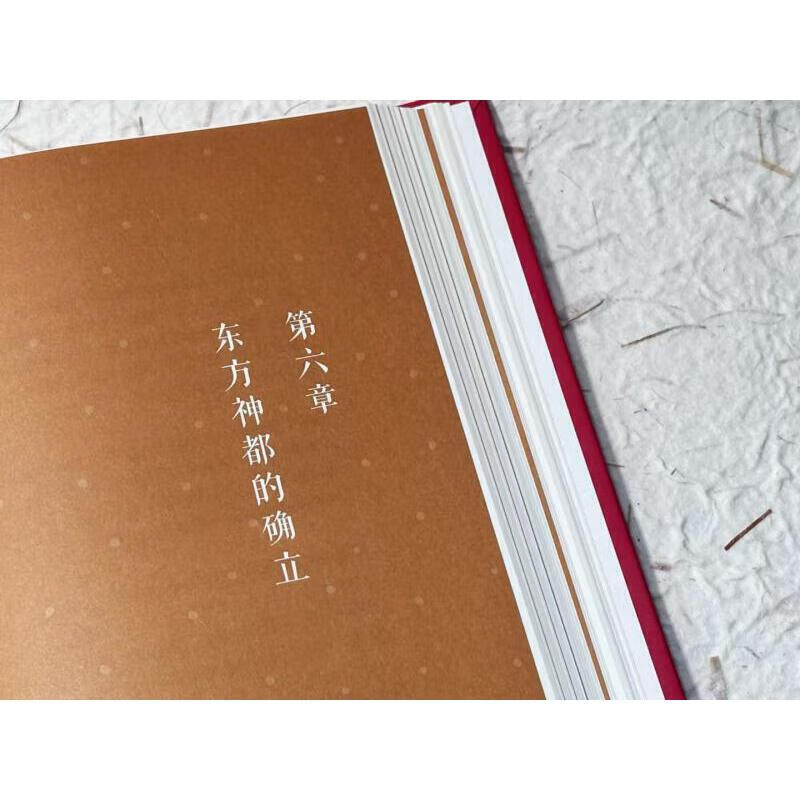 第六章
东方神都的确立